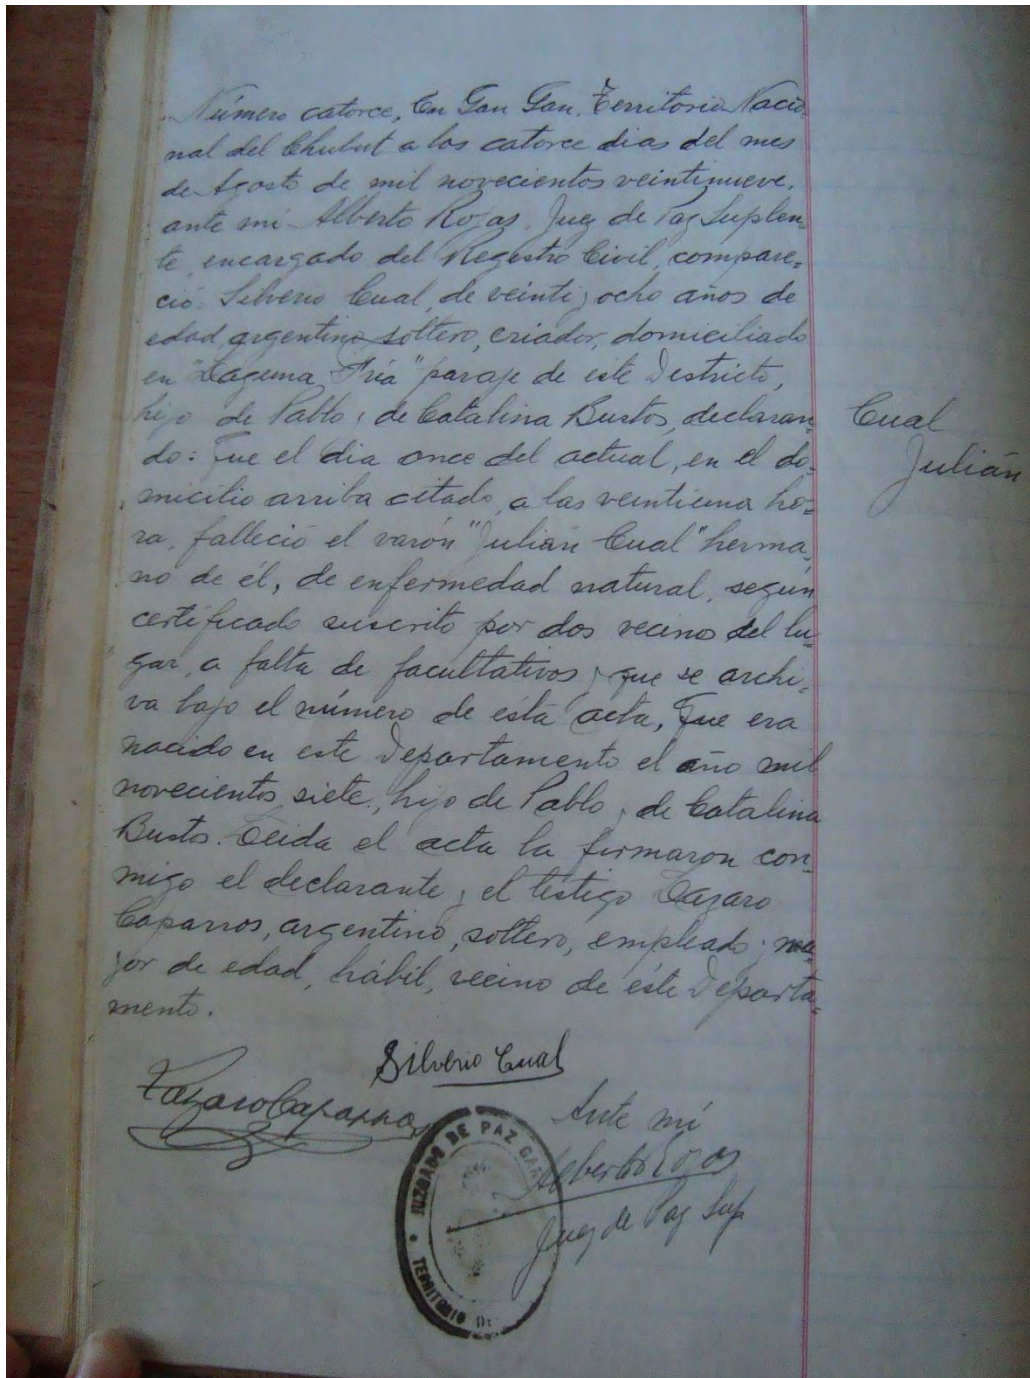 Número catorce, En Gan Gan, Territorio Nacio-
nal del Chubut a los catorce dias del mes
de Agosto de mil novecientos veintinueve,
ante mi Alberto Rojas, Juez de Paz Suplen-
te, encargado del Registro Civil, compare-
ció: Silverio Cual, de veinti y ocho años de
edad, argentino, soltero, criador, domiciliado
en "Laguna Fria" paraje de este Destricto,
hijo de Pablo y de Catalina Bustos, declaran-
do: Que el dia once del actual, en el do-
micilio arriba citado, a las veintiuna ho-
ra, falleció el varón "Julián Cual" herma-
no de él, de enfermedad natural, segun
certificado suscrito por dos vecinos del lu-
gar, a falta de facultativos y que se archi-
va bajo el número de esta acta, Que era
nacido en este Departamento el año mil
novecientos siete, hijo de Pablo y de Catalina
Busto. Leida el acta la firmaron con-
migo el declarante y el téstigo Lazaro
Caparros, argentino, soltero, empleado y ma-
yor de edad, hábil, vecino de éste Departa-
mento.
Cual
Julián
Silverio Cual
Lazaro Caparros
Ante mí
Alberto Rojas
Juez de Paz Sup
JUZGADO DE PAZ GAN
TERRITORIO DE